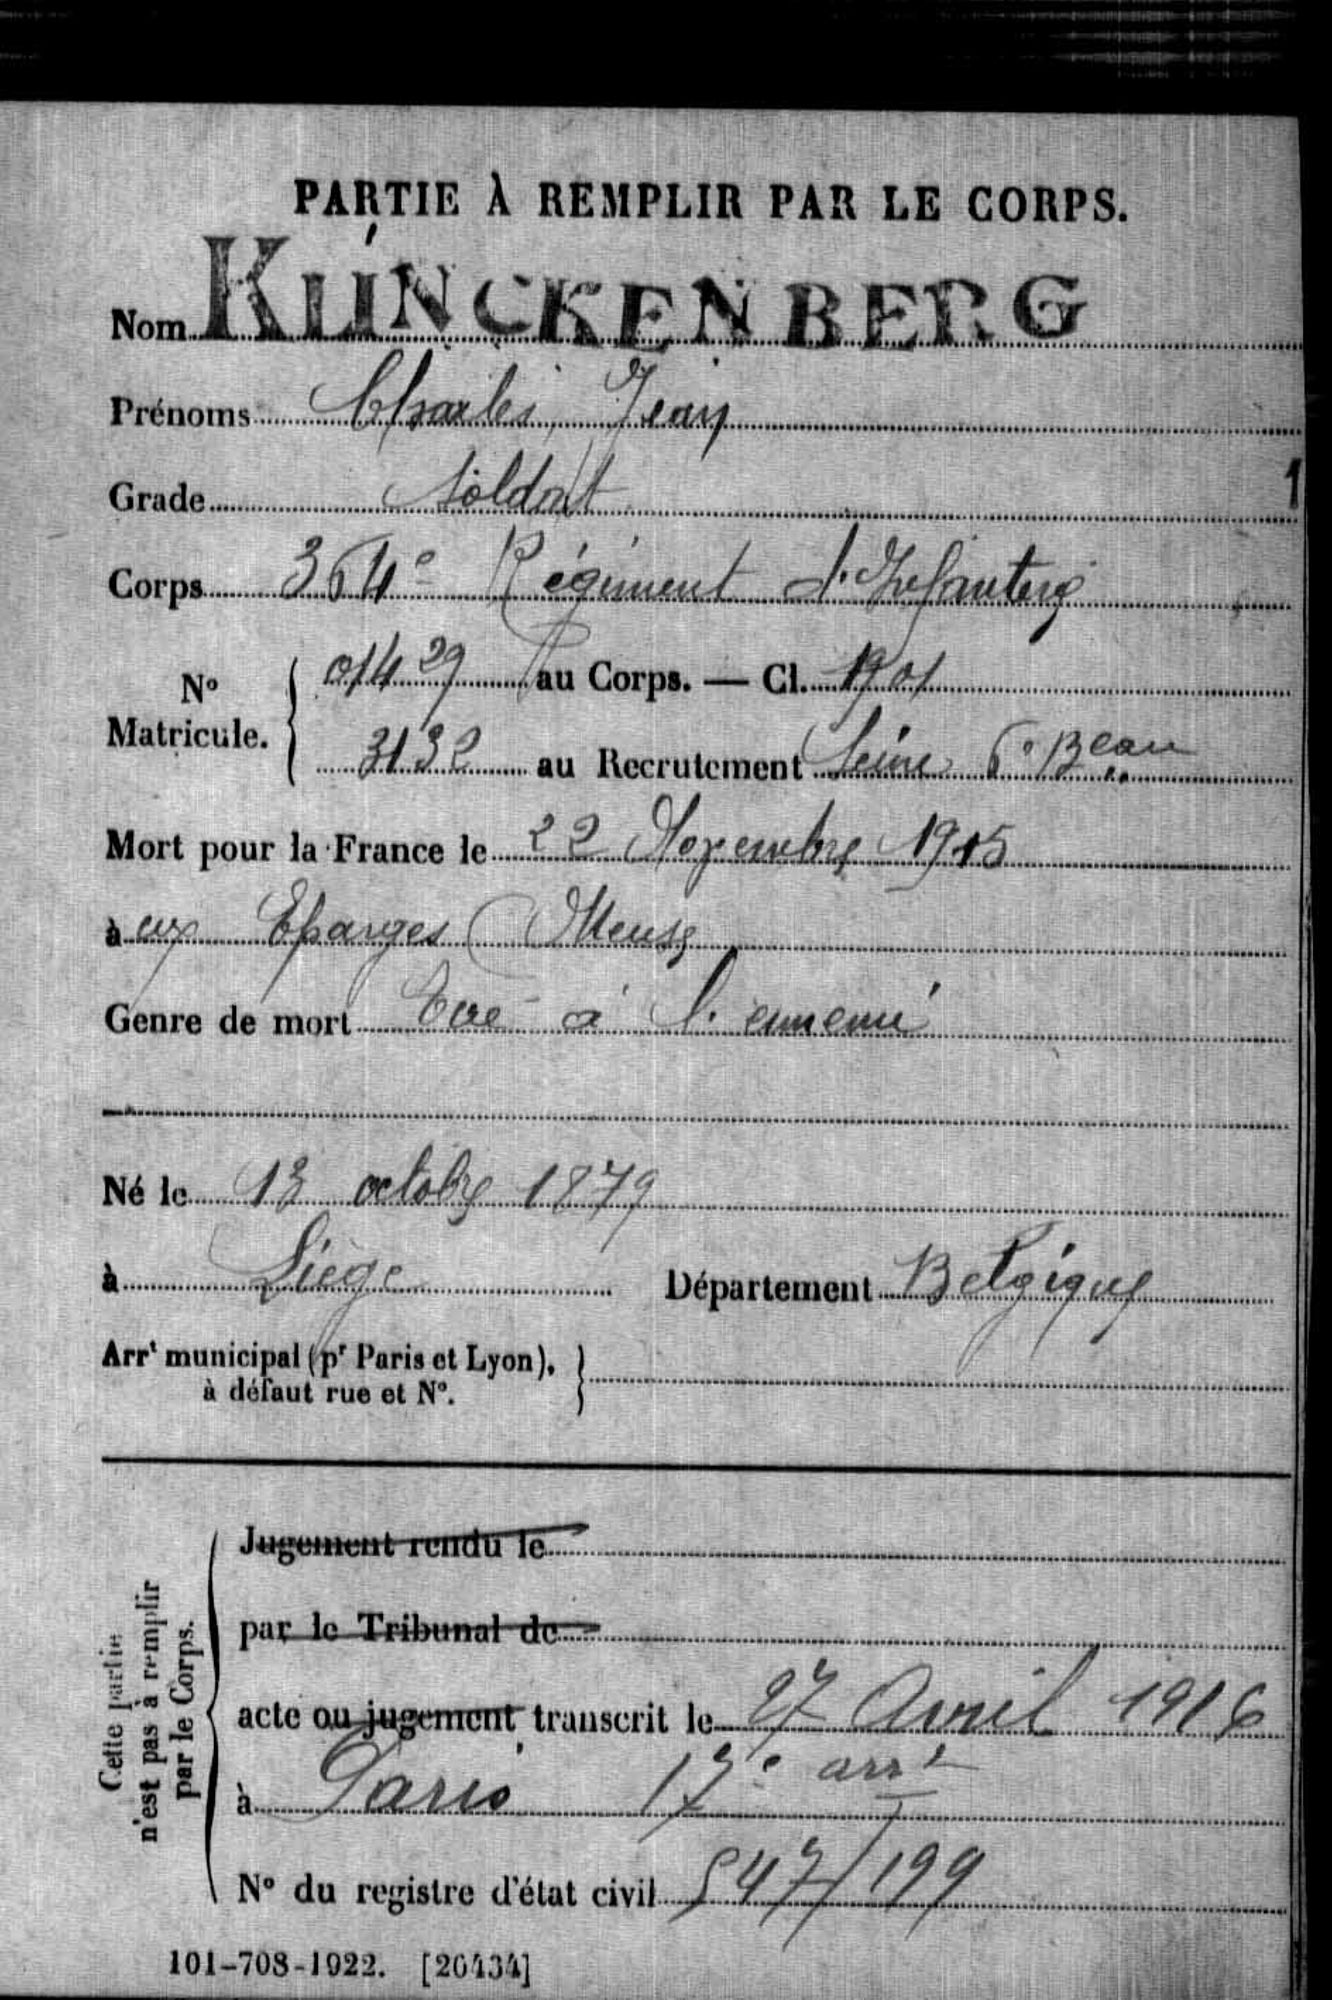 PARTIE À REMPLIR PAR LE CORPS.
Nom KLINCKENBERG
Prénoms Charles, Jean
Grade Soldat
1
Corps 364e Régiment d'Infanterie
No Matricule. { 01429 au Corps. — Cl. 1901
3132 au Recrutement Seine 6e Beau
Mort pour la France le 22 Novembre 1915
à ux Eparges (Meuse
Genre de mort Tué à l'ennemi
Né le 13 octobre 1879
à Liège Département Belgique
Arrt municipal (pr Paris et Lyon),
à défaut rue et No.
Cette partie
n'est pas à remplir
par le Corps.
Jugement rendu le
par le Tribunal de
acte ou jugement transcrit le 27 Avril 1916
à Paris 17e arrt
No du registre d'état civil 547/199
101-708-1922. [26434]